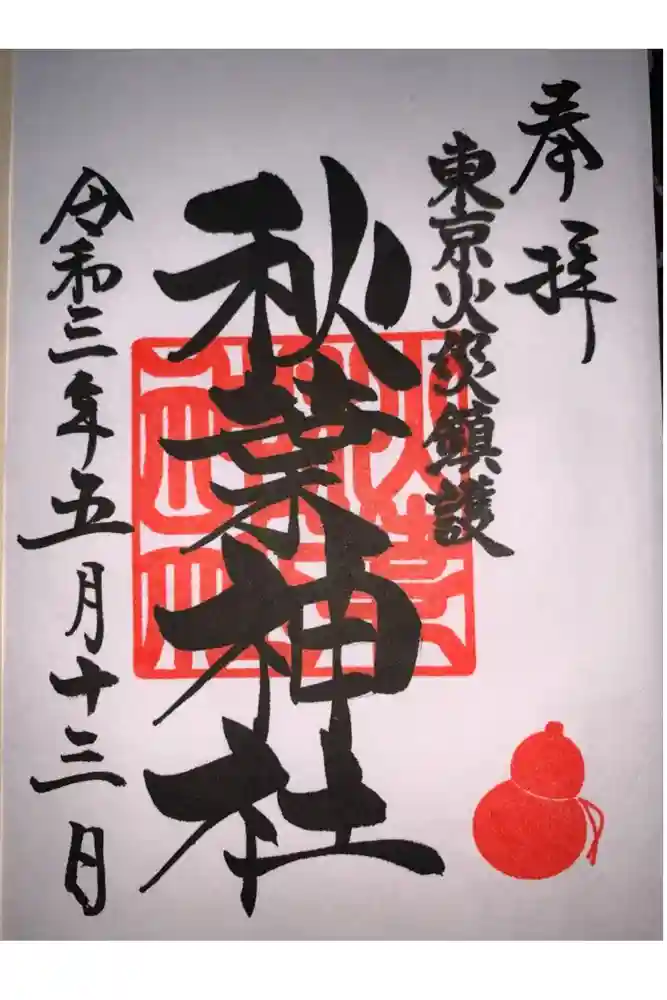 奉拝
東京火災鎮護
秋葉神社
令和三年五月十三日